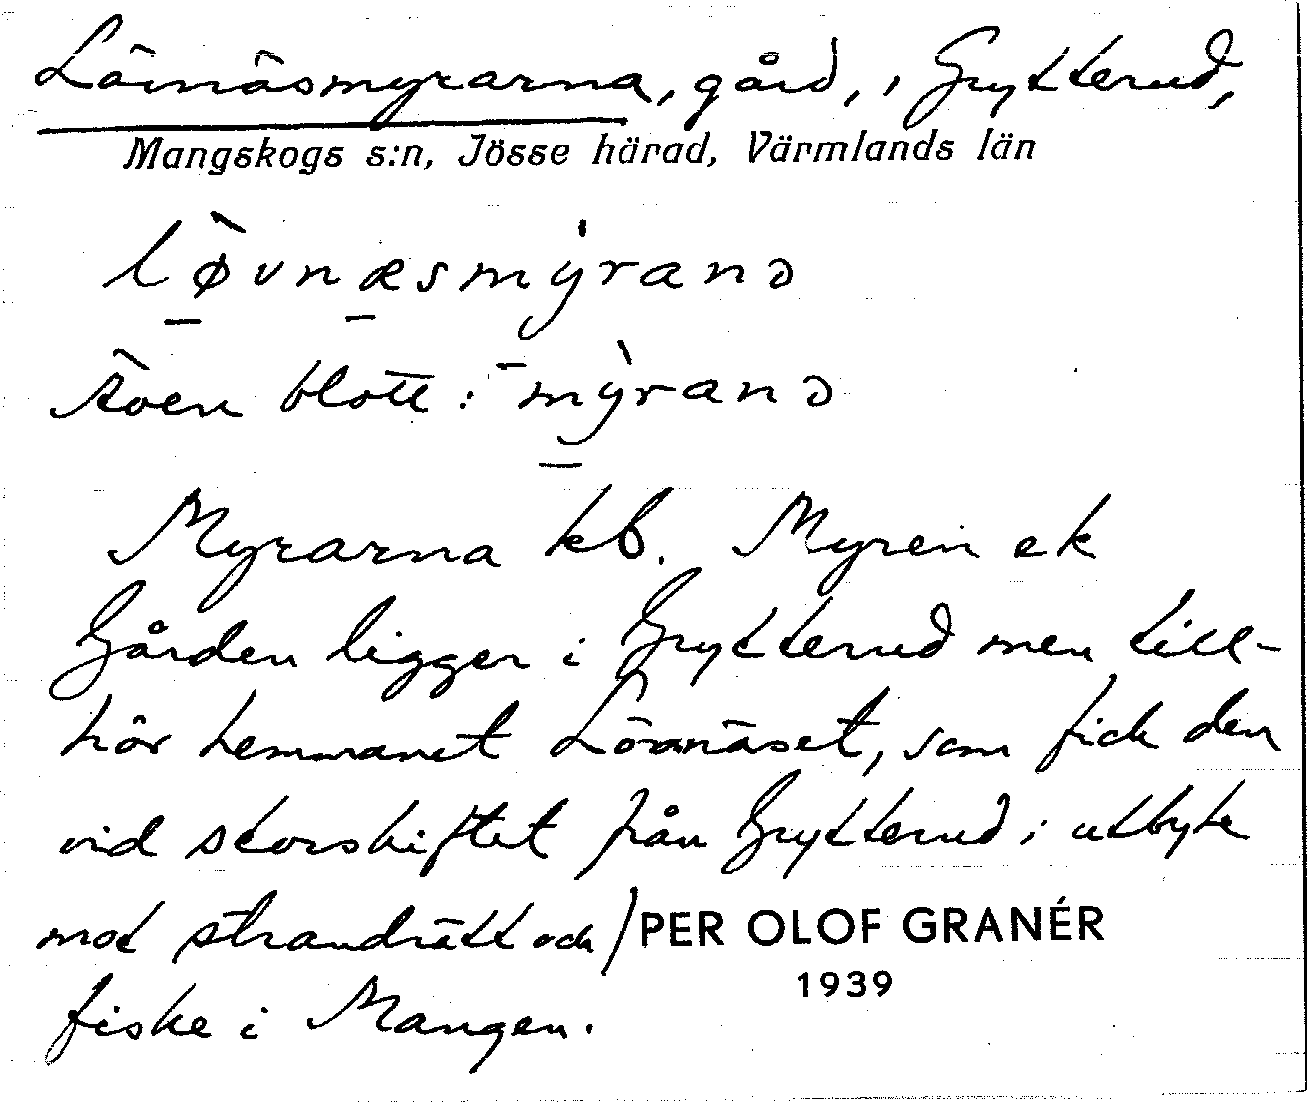 Lövnäsmyrarna, gård, i Grytterud,
Mangskogs s:n, Jösse härad, Värmlands län
lø̀vnæsmýranə
Även blott: mỳranə
Myrarna kb. Myren ek
Gården ligger i Grytterud men till-
hör hemmanet Lövnäset, som fick den
vid storskiftet från Grytterud i utbyte
mot strandrätt och
fiske i Mangen.
PER OLOF GRANÉR
1939